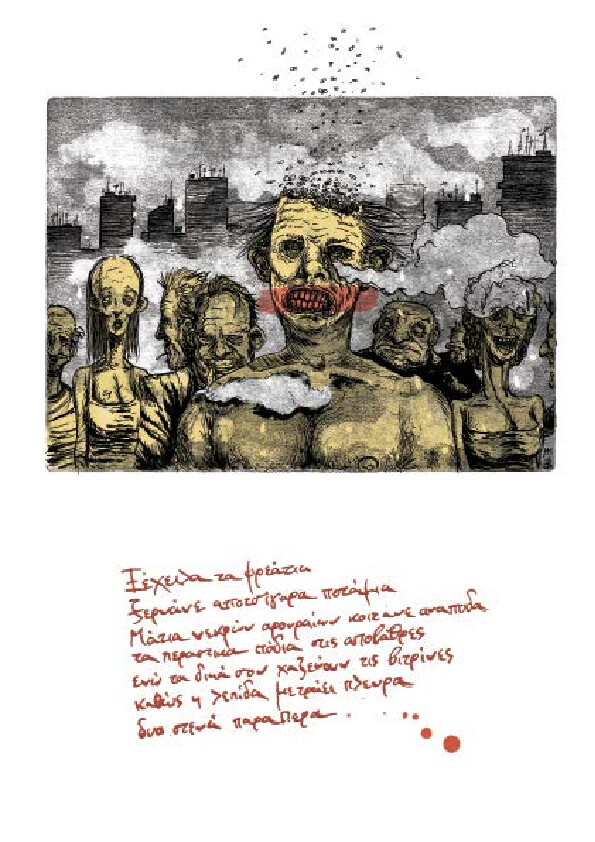 Ξέχειλα τα φρεάτια
ξερνάνε αποτσίγαρα ποτάμια
Μάτια νεκρών αρουραίων κοιτάνε ανάποδα
τα περαστικά πόδια στις αποβάθρες
ενώ τα δικά σου χαζεύουν τις βιτρίνες
καθώς η λεπίδα μετράει πλευρά
δυο στενά παραπέρα